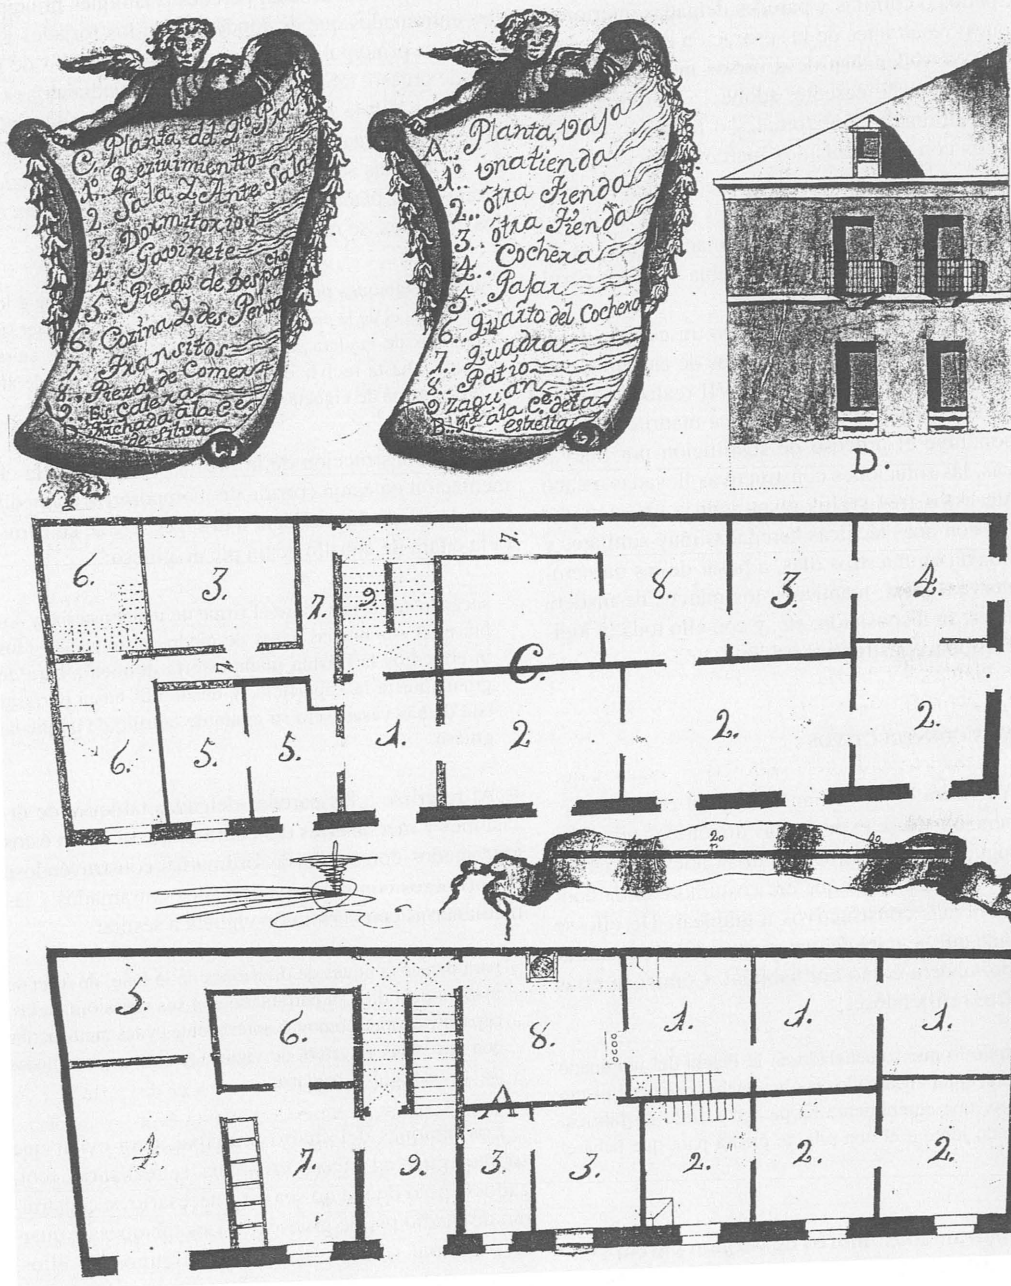 C. Planta del q.to Pral
1.. Recivimientto
2.. Sala, Y Ante Sala
3.. Dormitorios
4.. Gavinete
5.. Piezas de Despacho
6.. Cozina Y des Pensa
7.. Transitos
8.. Pieza de Comer
9.. Escalera
D. Fachada a la C.e
de Silva
A.. Planta, vaja
1.. vna tienda
2.. ótra Tienda
3.. ótra Tienda
4.. Cochera
5.. Pajar
6.. Quarto del Cochero
7.. Quadra
8.. Patio
9. Zaguan
B. a la C.e de la
estrella
D.
6. 3. 7. 9. 7. 8. 3. 4.
7. C.
6. 5. 5. 1. 2 2. 2.
20 40
5. 6. 8. 1. 1. 1.
A
4. 7. 9. 3. 3. 2. 2. 2.